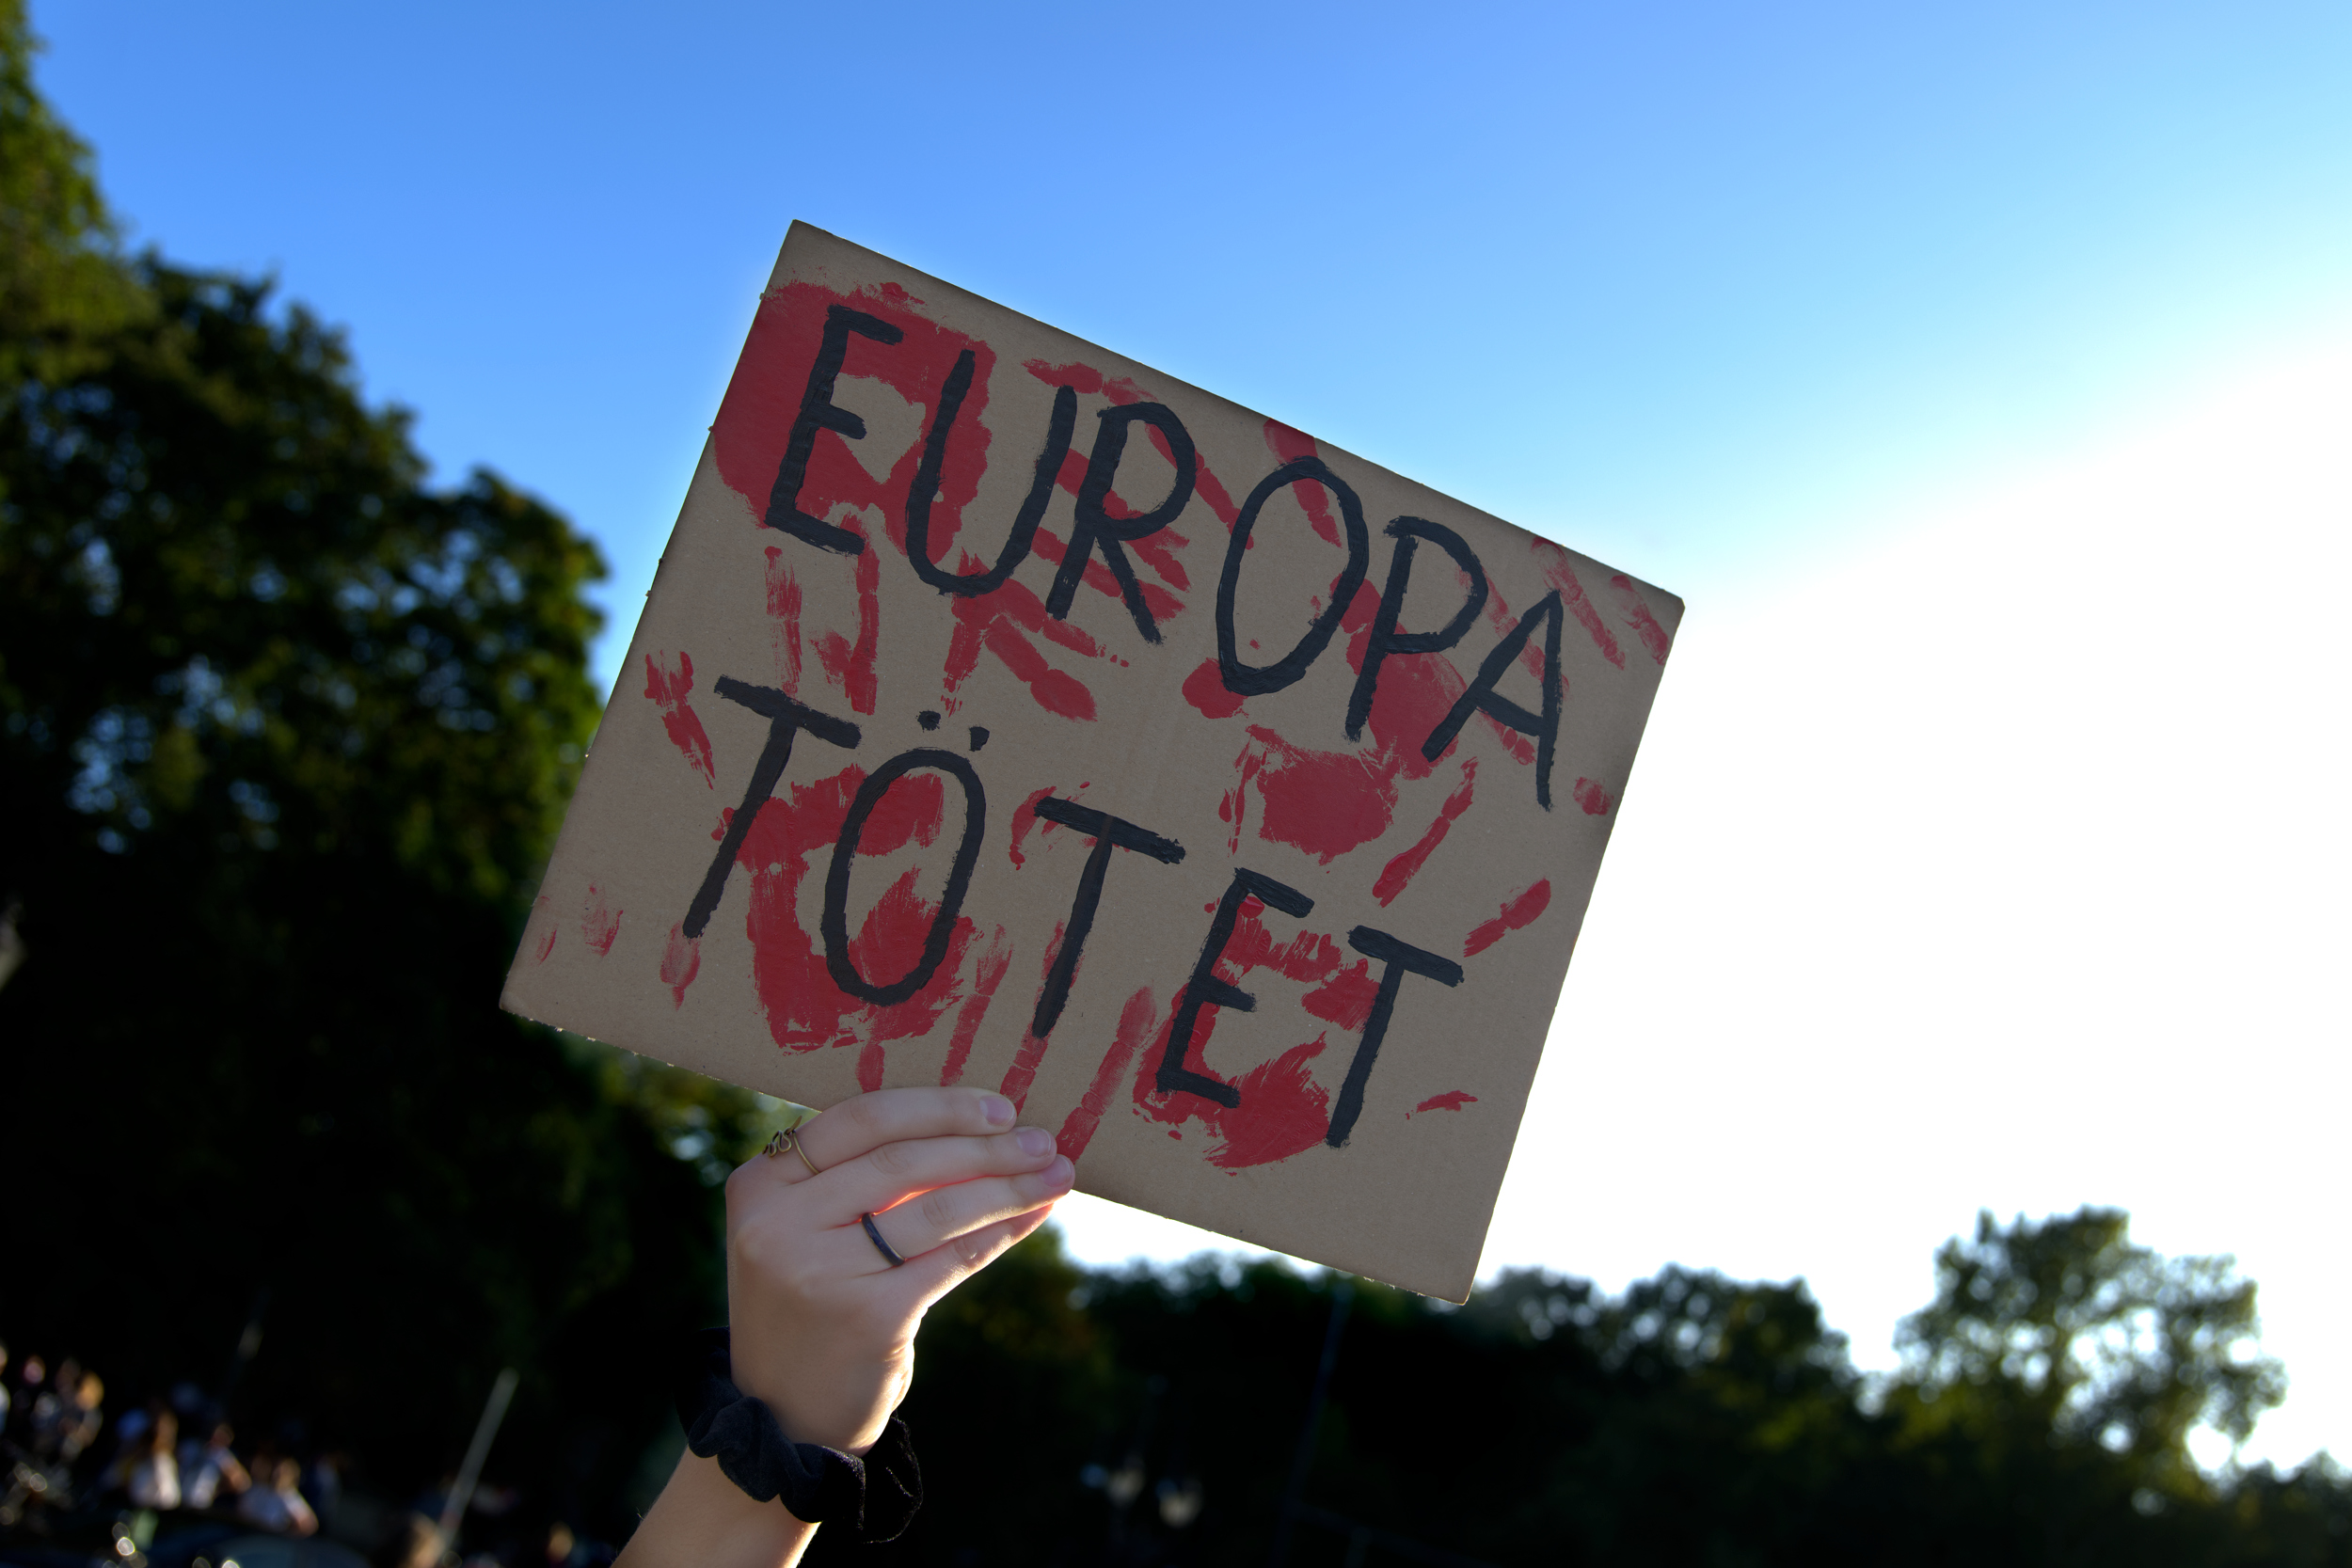 EUROPA
TÖTET